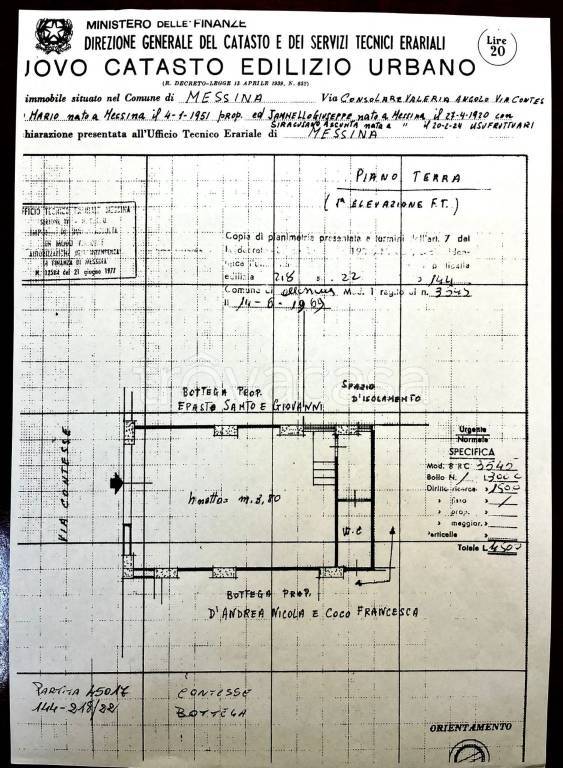 MINISTERO DELLE FINANZE
DIREZIONE GENERALE DEL CATASTO E DEI SERVIZI TECNICI ERARIALI
Lire
20
UOVO CATASTO EDILIZIO URBANO
(R. DECRETO-LEGGE 13 APRILE 1939, N. 652)
immobile situato nel Comune di MESSINA Via CONSOLARE VALERIA ANGOLO VIA CONTES
MARIO nato a Messina il 4-1-1951 prop. ed IANNELLO GIUSEPPE nato a Messina il 27-4-1920 con
SIRACUSANO ASSUNTA nata a " il 20-2-24 USUFRUTTUARI
hiarazione presentata all'Ufficio Tecnico Erariale di MESSINA
PIANO TERRA
(1ª ELEVAZIONE F.T.)
N. 12584 del 21 giugno 1977
Copia di planimetria presentata a termini dell'art. 7 del
edilizia 218 22 " 144
Comune di Messina Mod. 1 raglio di n. 3545
il 14-6-1969
trovacasa
BOTTEGA PROP.
EPASTO SANTO E GIOVANNI
SPAZIO
D'ISOLAMENTO
VIA CONTESSE
h netta = m. 3,80
W.C
BOTTEGA PROP.
D'ANDREA NICOLA E COCO FRANCESCA
Urgente
Normale
SPECIFICA
Mod. 8 RC 3545
Bollo N. 1 L. 3000
Diritto ricerca » 1500
» fisso » /
» prop. »
» maggior. »
Particelle »
Totale L. 4500
PARTITA 45017
144-218/22
CONTESSE
BOTTEGA
ORIENTAMENTO